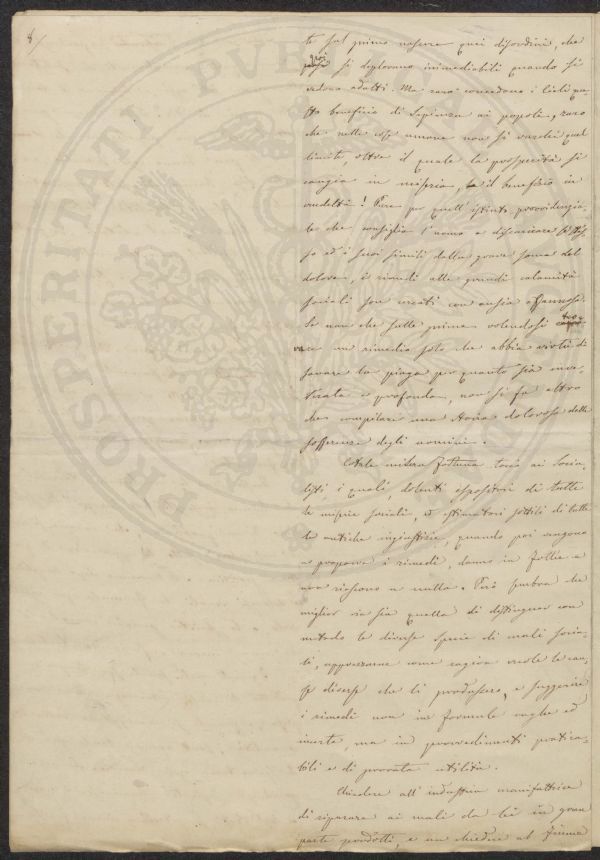 8/
te sul primo nascere quei disordini, che
poi si deplorano irrimediabili quando si
adulti. Ma rara concedono i Cieli que-
sto beneficio di Sapienza ai popoli, e raro
che nelle cose umane non si varchi quel
limite, oltre il quale la prosperità si
cangia in miseria, e il benefizio in
crudeltà! Pure per quell'istinto provvidenzia-
le che consiglia l'uomo a discaricare se stes-
so ed i suoi simili dalla grave soma del
dolore, i rimedi alle grandi calamità
sociali son cercati con ansia affannosa.
Se non che sulle prime volendosi tro-
vare un rimedio solo che abbia virtù di
sanare la piaga per quanto sia inve-
terata e profonda, non si fa altro
che compilare una storia dolorosa delle
sofferenze degli uomini.
Cotale misera fortuna toccò ai Socia-
listi, i quali, dolenti espositori di tutte
le miserie sociali, ed estimatori sottili di tutte
le antiche ingiustizie, quando poi vengono
a proporre i rimedi, danno in follie e
non riescono a nulla. Però sembra che
miglior via sia quella di distinguer con
metodo le diverse specie di mali socia-
li, apprezzarne come ragion vuole le cau-
se diverse che li produssero, e suggerire
i rimedi non in formule vaghe ed
incerte, ma in provvedimenti pratica-
bili e di provata utilità.
Chiedere all'industria manifattrice
di riparare ai mali da lei in gran
parte prodotti, è un chiedere al fiume
PROSPERITATI PUBLICAE